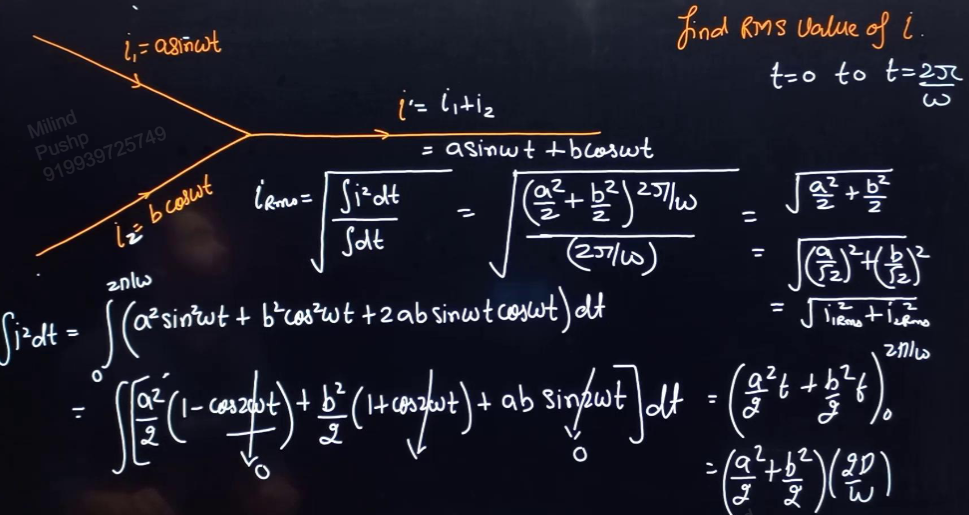 i₁ = asinωt
find RMS value of i.
t=0 to t=2π/ω
i = i₁+i₂
= asinωt + bcosωt
Milind
Pushp
919939725749
i₂ = bcosωt
iRms = √(∫i²dt / ∫dt) = √((a²/2 + b²/2) 2π/ω / (2π/ω)) = √(a²/2 + b²/2)
= √((a/√2)² + (b/√2)²)
= √(i₁Rms² + i₂Rms²)
∫i²dt = ∫₀^2π/ω (a²sin²ωt + b²cos²ωt + 2ab sinωt cosωt) dt
= ∫[a²/2 (1-cos2ωt) + b²/2 (1+cos2ωt) + ab sin2ωt] dt = (a²/2 t + b²/2 t)₀^2π/ω
0
0
= (a²/2 + b²/2)(2π/ω)